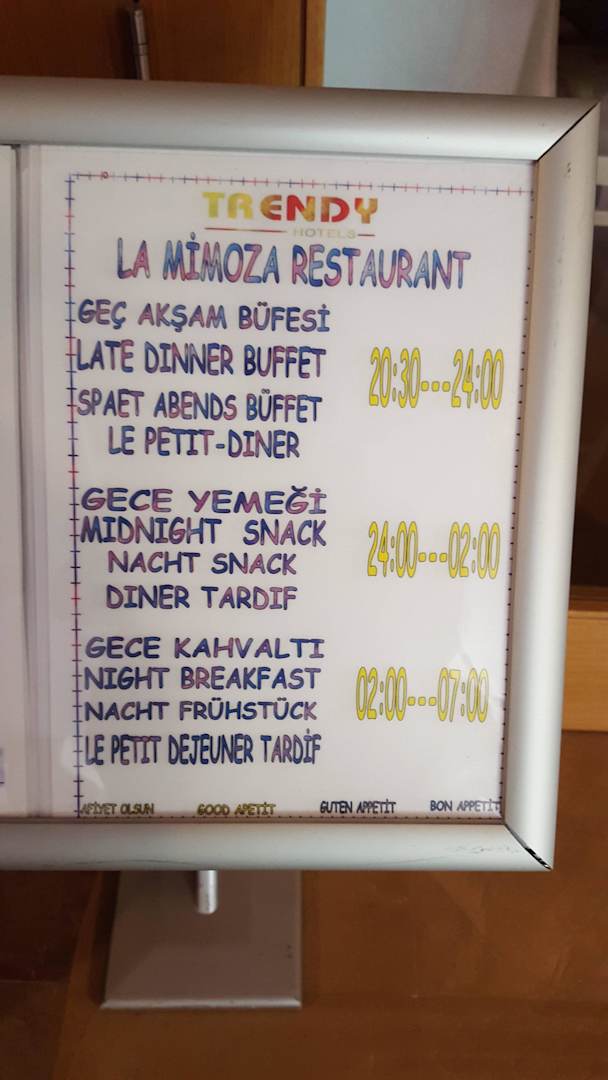 TRENDY
HOTELS
LA MİMOZA RESTAURANT
GEÇ AKŞAM BÜFESİ
LATE DINNER BUFFET
SPAET ABENDS BÜFFET
LE PETIT-DINER
20:30---24:00
GECE YEMEĞİ
MIDNIGHT SNACK
NACHT SNACK
DINER TARDIF
24:00---02:00
GECE KAHVALTI
NIGHT BREAKFAST
NACHT FRÜHSTÜCK
LE PETİT DEJEUNER TARDİF
02:00---07:00
AFİYET OLSUN GOOD APETİT GUTEN APPETİT BON APPETİT